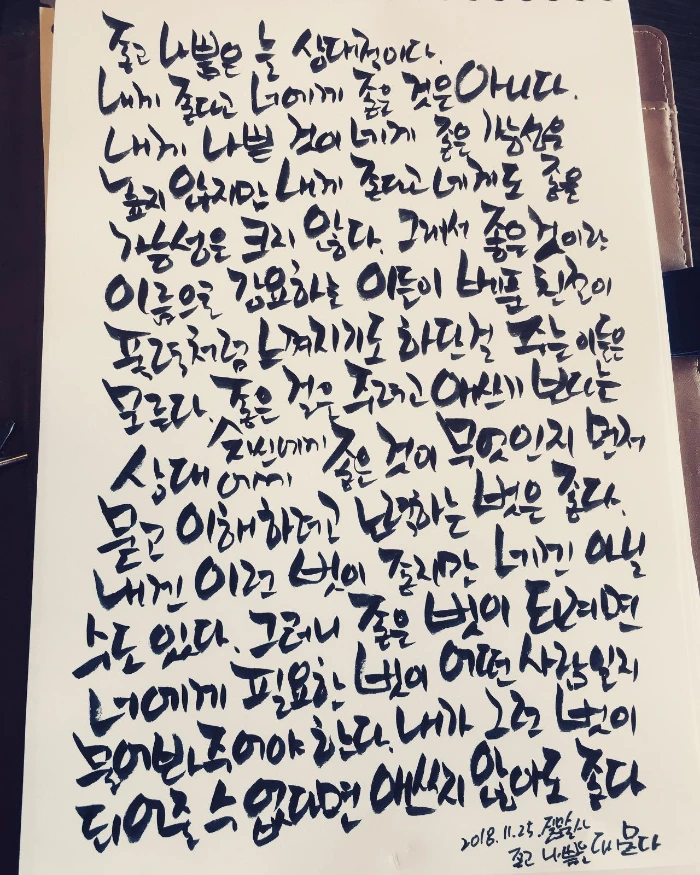 좋고 나쁨은 늘 상대적이다.
내게 좋다고 너에게 좋은 것은 아니다.
내게 나쁠 것이 네게 좋은 가능성은
높지 않지만 내게 좋다고 네게도 좋을
가능성은 크지 않다. 그래서 좋은 것이란
이름으로 강요하는 이들이 베푼 친절이
폭력처럼 느껴지기도 하단걸 주는 이들은
모른다. 좋은 걸을 주려고 애쓰기 보다는
상대 자신에게 좋은 것이 무엇인지 먼저
에게
묻고 이해하려고 노력하는 벗은 좋다.
내겐 이런 벗이 좋지만 네겐 아닐
수도 있다. 그러니 좋은 벗이 되려면
너에게 필요한 벗이 어떤 사람일지
물어봐주어야 한다. 내가 그런 벗이
되어줄 수 없다면 애쓰지 않아도 좋다
2018.11.25.
좋고 나쁨은